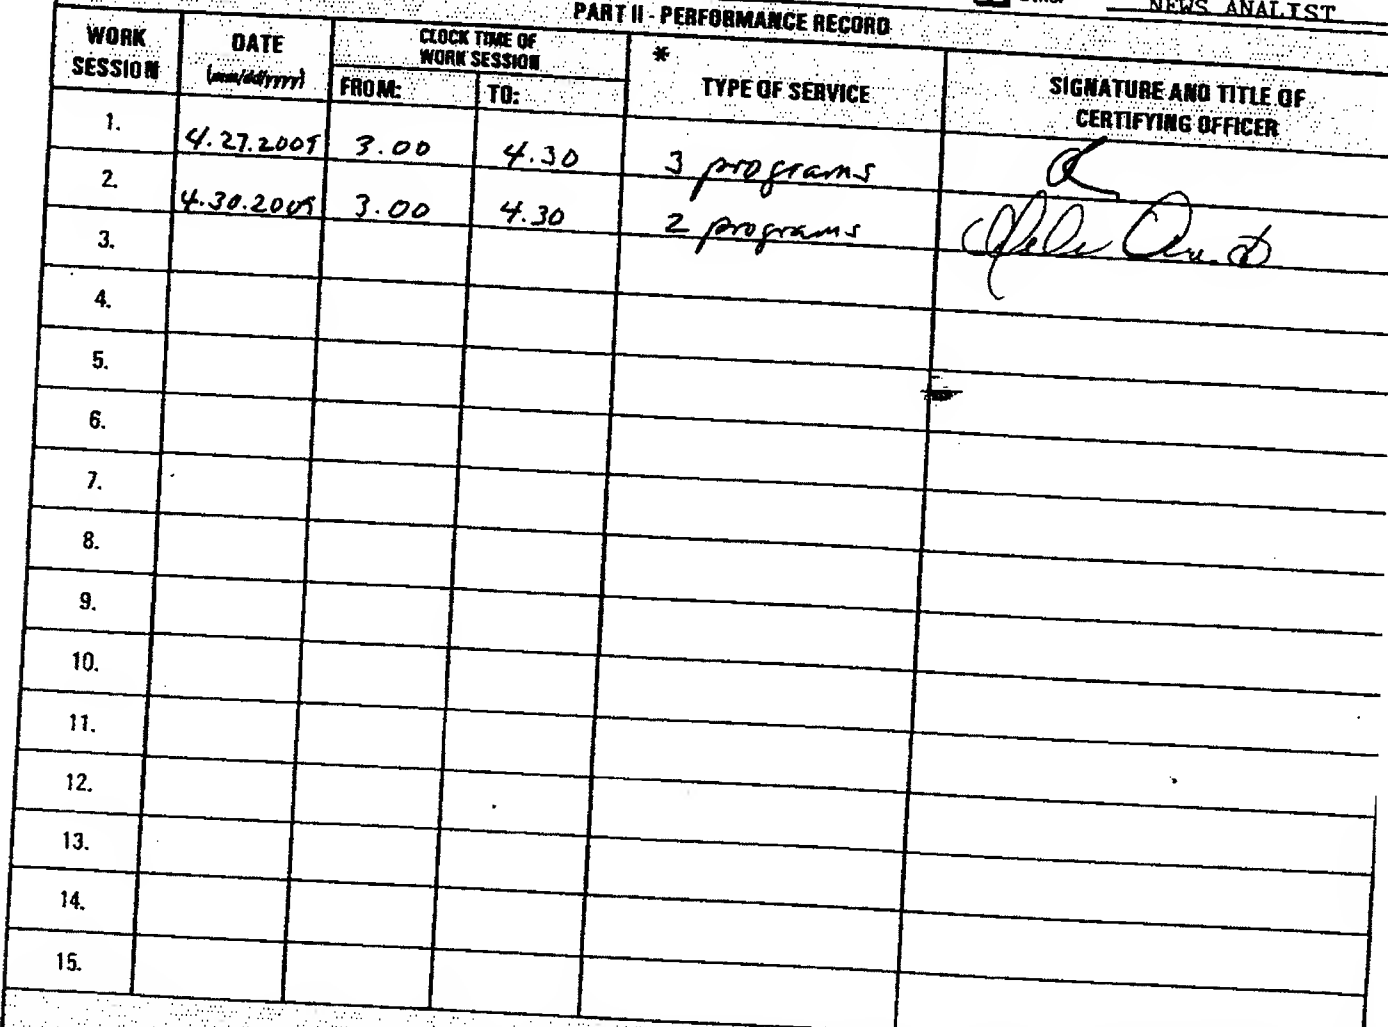 NEWS ANALIST
PART II - PERFORMANCE RECORD
WORK SESSION
DATE
(mm/dd/yyyy)
CLOCK TIME OF WORK SESSION
FROM:
TO:
*
TYPE OF SERVICE
SIGNATURE AND TITLE OF CERTIFYING OFFICER
1. 4.27.2009 3.00 4.30 3 programs
2. 4.30.2009 3.00 4.30 2 programs
3.
4.
5.
6.
7.
8.
9.
10.
11.
12.
13.
14.
15.